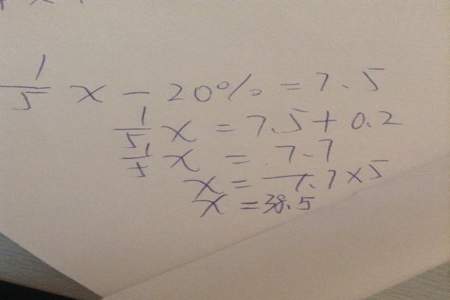 1/5 x - 20% = 7.5
1/5 x = 7.5 + 0.2
1/5 x = 7.7
x = 7.7 × 5
x = 38.5